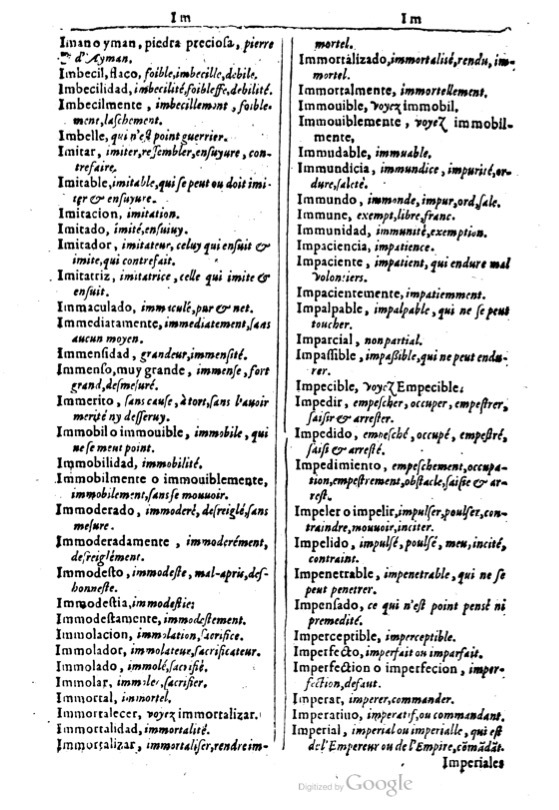 Im
Iman o yman, piedra preciosa, pierre
d'Ayman.
Imbecil, flaco, foible, imbecille, debile.
Imbecilidad, imbecilité, foiblesse, debilité.
Imbecilmente, imbecillement, foible-
ment, laschement.
Imbelle, qui n'est point guerrier.
Imitar, imiter, ressembler, ensuyure, con-
trefaire.
Imitable, imitable, qui se peut ou doit imi-
ter & ensuyure.
Imitacion, imitation.
Imitado, imité, ensuiuy.
Imitador, imitateur, celuy qui ensuit &
imite, qui contrefait.
Imitatriz, imitatrice, celle qui imite &
ensuit.
Immaculado, immaculé, pur & net.
Immediatamente, immediatement, sans
aucun moyen.
Immensidad, grandeur, immensité.
Immenso, muy grande, immense, fort
grand, desmesuré.
Immerito, sans cause, à tort, sans l'auoir
merité ny desseruy.
Immobil o immouible, immobile, qui
ne se meut point.
Immobilidad, immobilité.
Immobilmente o immouiblemente,
immobilement, sans se mouuoir.
Immoderado, immoderé, desreiglé, sans
mesure.
Immoderadamente, immoderément,
desreiglément.
Immodesto, immodeste, mal-apris, des-
honneste.
Immodestia, immodestie:
Immodestamente, immodestement.
Immolacion, immolation, sacrifice.
Immolador, immolateur, sacrificateur.
Immolado, immolé, sacrifié.
Immolar, immoler, sacrifier.
Immortal, immortel.
Immortalecer, voyez immortalizar.
Immortalidad, immortalité.
Immortalizar, immortaliser, rendre im-
Im
mortel.
Immortalizado, immortalisé, rendu, im-
mortel.
Immortalmente, immortellement.
Immouible, voyez immobil.
Immouiblemente, voyez immobil-
mente,
Immudable, immuable.
Immundicia, immundice, impurité, or-
dure, saleté.
Immundo, immonde, impur, ord, sale.
Immune, exempt, libre, franc.
Immunidad, immunité, exemption.
Impaciencia, impatience.
Impaciente, impatient, qui endure mal
volontiers.
Impacientemente, impatiemment.
Impalpable, impalpable, qui ne se peut
toucher.
Imparcial, non partial.
Impassible, impassible, qui ne peut endu-
rer.
Impecible, voyez Empecible:
Impedir, empescher, occuper, empestrer,
saisir & arrester.
Impedido, empesché, occupé, empestré,
saisi & arresté.
Impedimiento, empeschement, occupa-
tion, empestrement, obstacle, saisie & ar-
rest.
Impeler o impelir, impulser, poulser, con-
traindre, mouuoir, inciter.
Impelido, impulsé, poulsé, meu, incité,
contraint.
Impenetrable, impenetrable, qui ne se
peut penetrer.
Impensado, ce qui n'est point pensé ni
premedité.
Imperceptible, imperceptible.
Imperfecto, imperfait ou imparfait.
Imperfection o imperfecion, imper-
fection, defaut.
Imperar, imperer, commander.
Imperatiuo, imperatif, ou commandant.
Imperial, imperial ou imperialle, qui est
de l'Empereur ou de l'Empire, cõmãdãt.
Imperiales
Digitized by Google